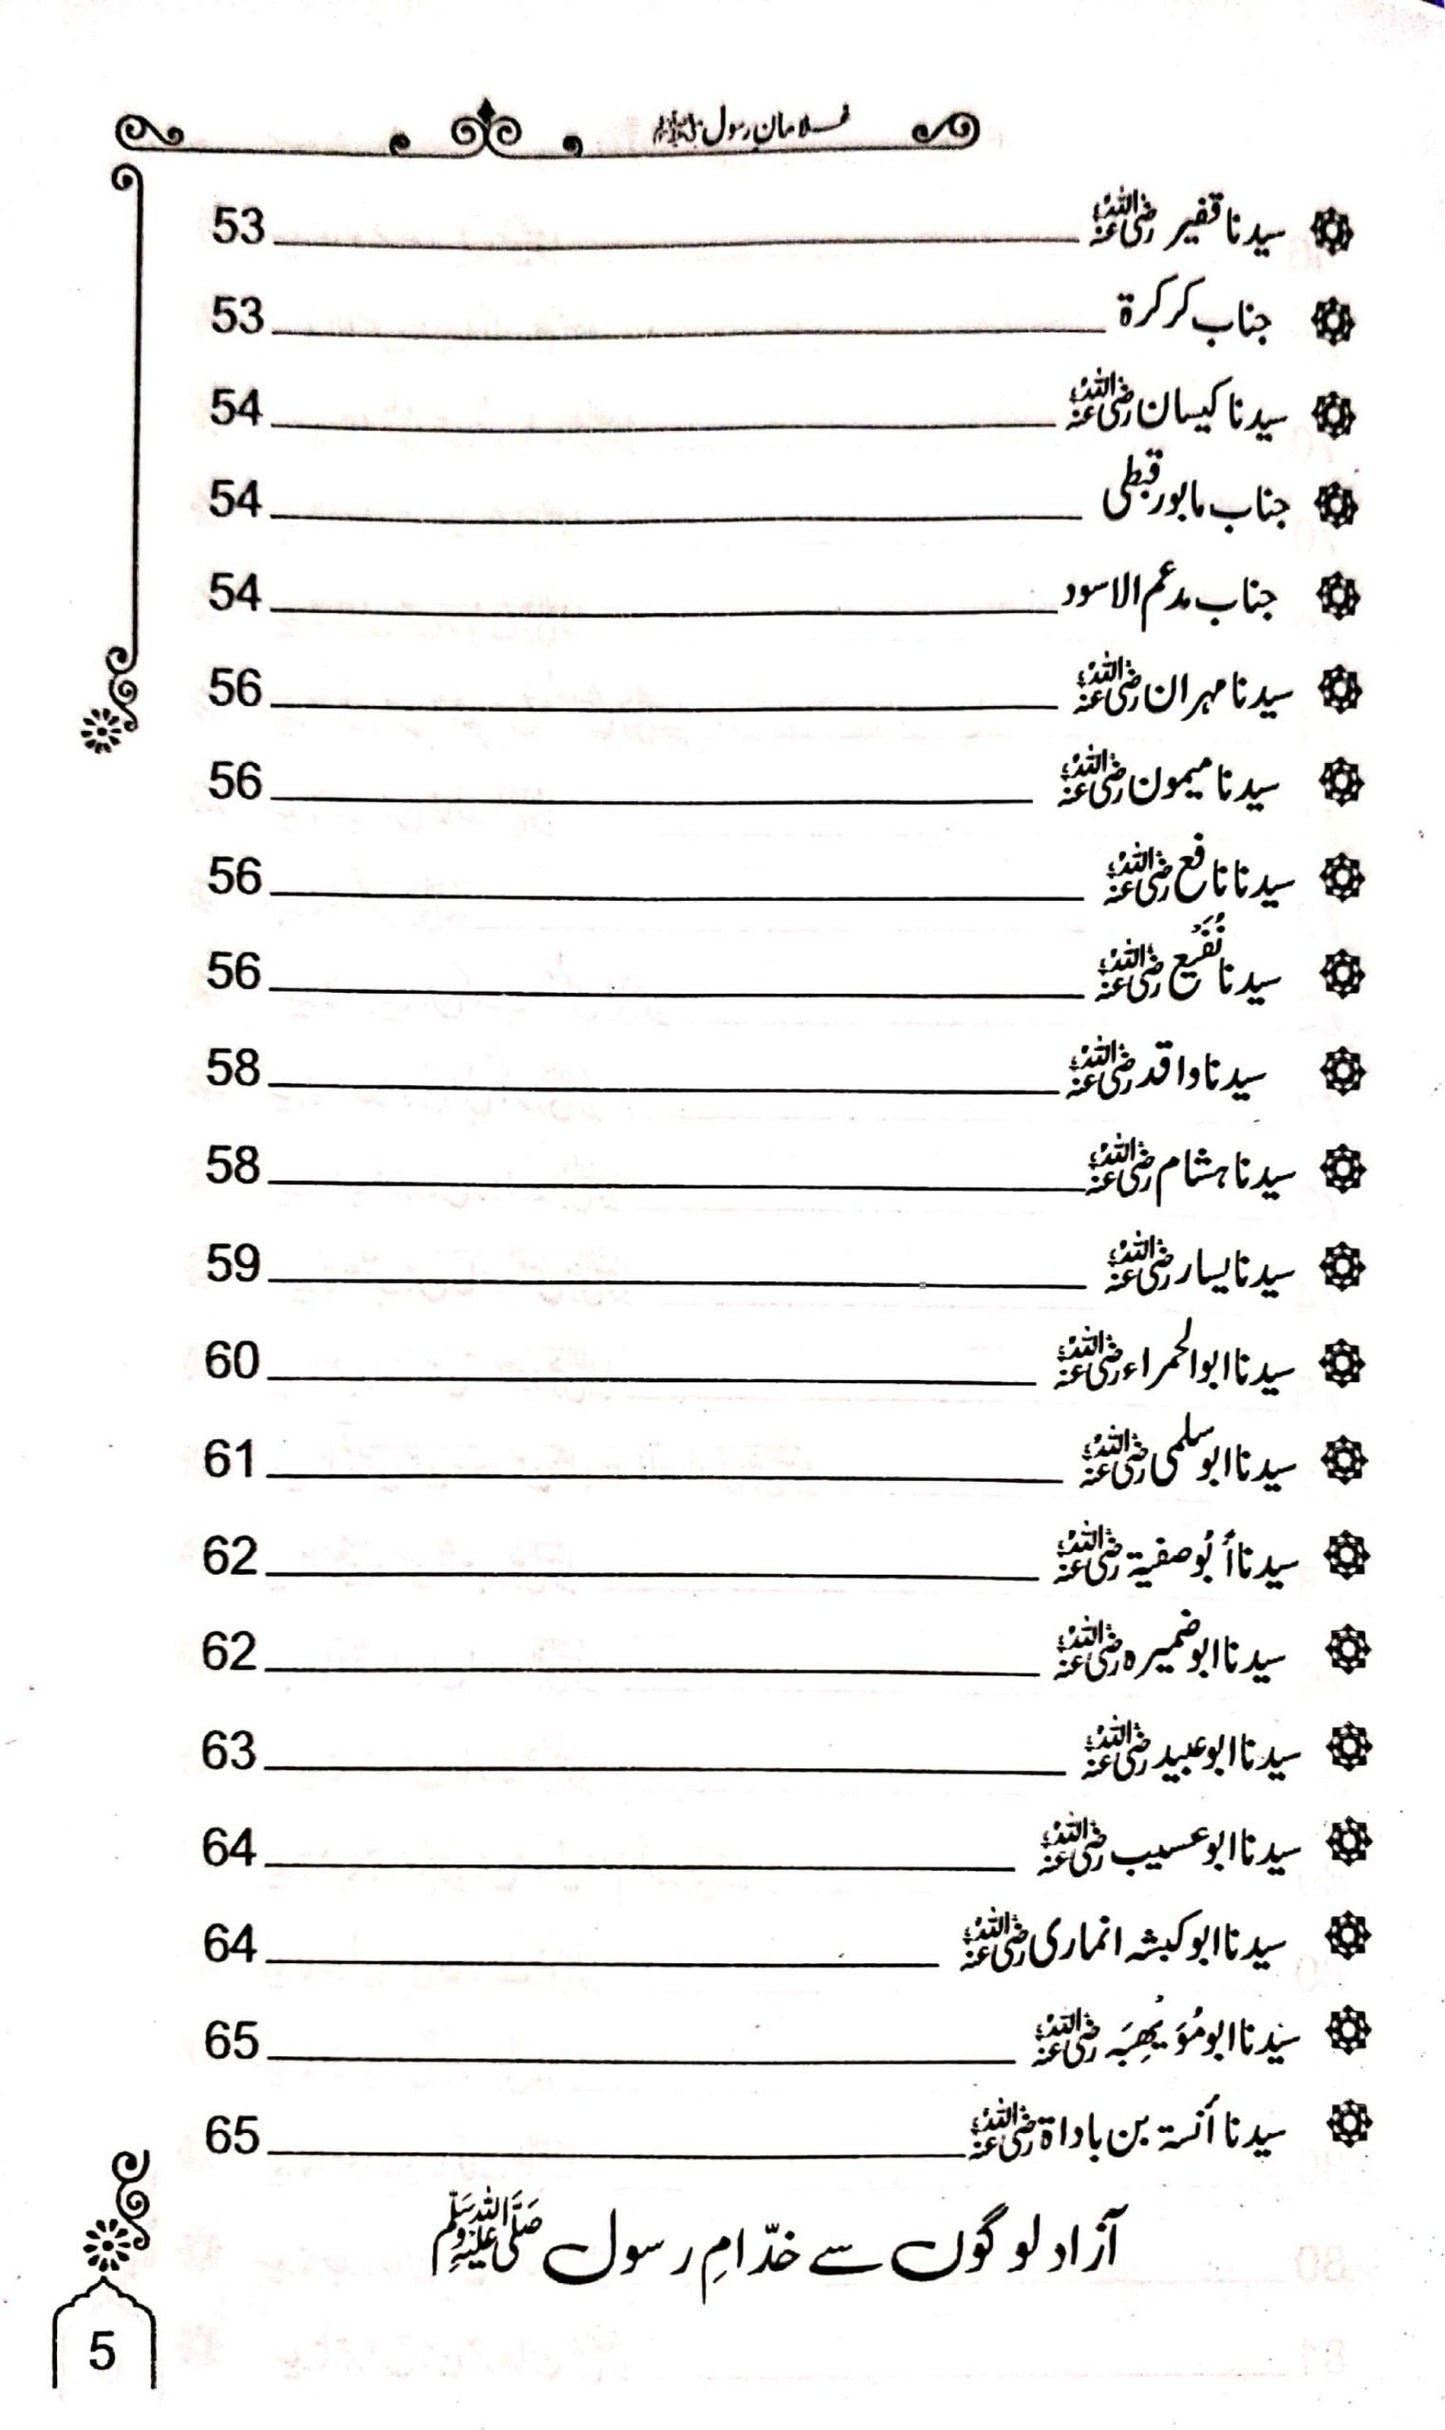 غلامان رسول ﷺ
سیدنا قفیر رضی اللہ عنہ 53
جناب کرکرۃ 53
سیدنا کیسان رضی اللہ عنہ 54
جناب مابور قبطی 54
جناب مدعم الاسود 54
سیدنا مہران رضی اللہ عنہ 56
سیدنا میمون رضی اللہ عنہ 56
سیدنا نافع رضی اللہ عنہ 56
سیدنا نُفَیع رضی اللہ عنہ 56
سیدنا واقد رضی اللہ عنہ 58
سیدنا ہشام رضی اللہ عنہ 58
سیدنا یسار رضی اللہ عنہ 59
سیدنا ابو الحمراء رضی اللہ عنہ 60
سیدنا ابو سلمی رضی اللہ عنہ 61
سیدنا أبُو صفیۃ رضی اللہ عنہ 62
سیدنا ابو ضمیرہ رضی اللہ عنہ 62
سیدنا ابو عبید رضی اللہ عنہ 63
سیدنا ابو عسیب رضی اللہ عنہ 64
سیدنا ابو کبشہ انماری رضی اللہ عنہ 64
سیدنا ابو مُوَیْھِبَہ رضی اللہ عنہ 65
سیدنا أنسۃ بن باداۃ رضی اللہ عنہ 65
آزاد لوگوں سے خدّامِ رسول ﷺ
5